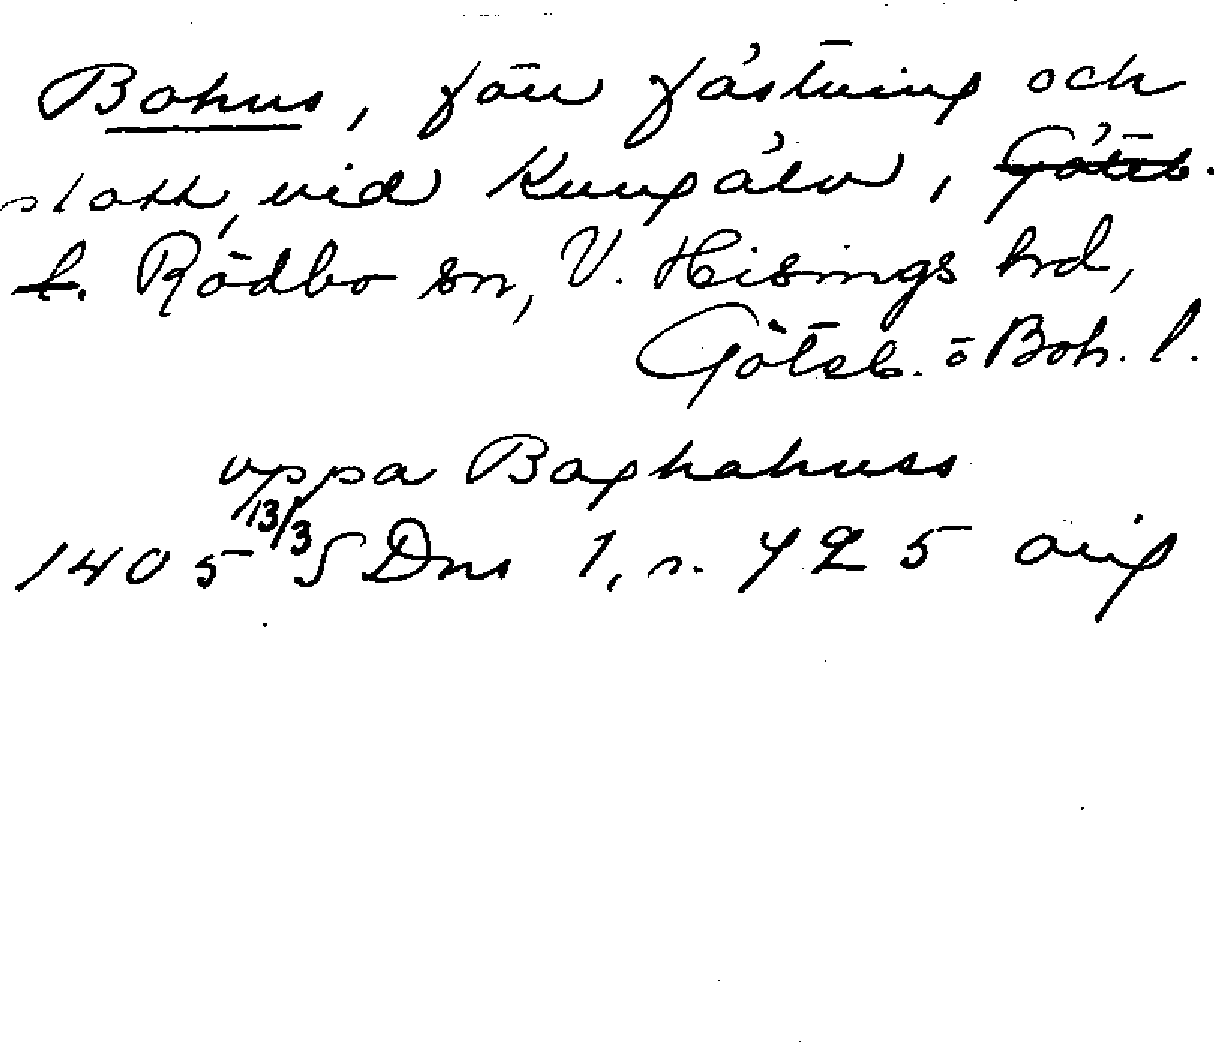 Bohus, förr fästning och
slott, vid Kungälv, Göteb.
l. Rödbo sn, V. Hisings hrd,
Göteb. o Boh. l.
vppa Baghahuss
1405 13/3 SDns 1, s. 425 orig